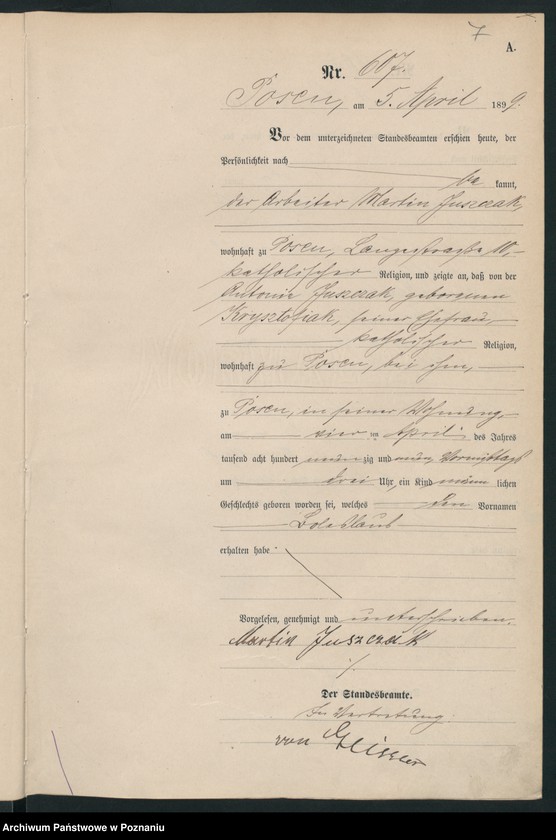 7
A.
Nr. 607.
Posen, am 5. April 1899.
Vor dem unterzeichneten Standesbeamten erschien heute, der
Persönlichkeit nach
be kannt,
der Arbeiter Martin Juszczak,
wohnhaft zu Posen, Langestraße 10,
katholischer Religion, und zeigte an, daß von der
Antonie Juszczak, geborenen
Krysztofiak, seiner Ehefrau,
katholischer Religion,
wohnhaft zu Posen, bei ihm,
zu Posen, in seiner Wohnung,
am vier ten April des Jahres
tausend acht hundert neunzig und neun, Vormittags
um drei Uhr, ein Kind männ lichen
Geschlechts geboren worden sei, welches den Vornamen
Boleslaus
erhalten habe
Vorgelesen, genehmigt und unterschrieben.
Martin Juszczak
Der Standesbeamte.
In Vertretung.
von
Archiwum Państwowe w Poznaniu